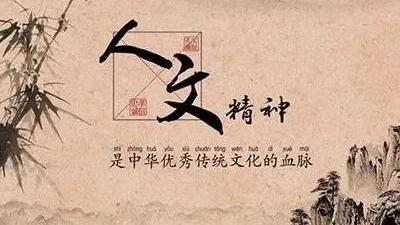 人文精神
shì zhōng huá yōu xiù chuán tǒng wén huà dí xuè mài
是中华优秀传统文化的血脉